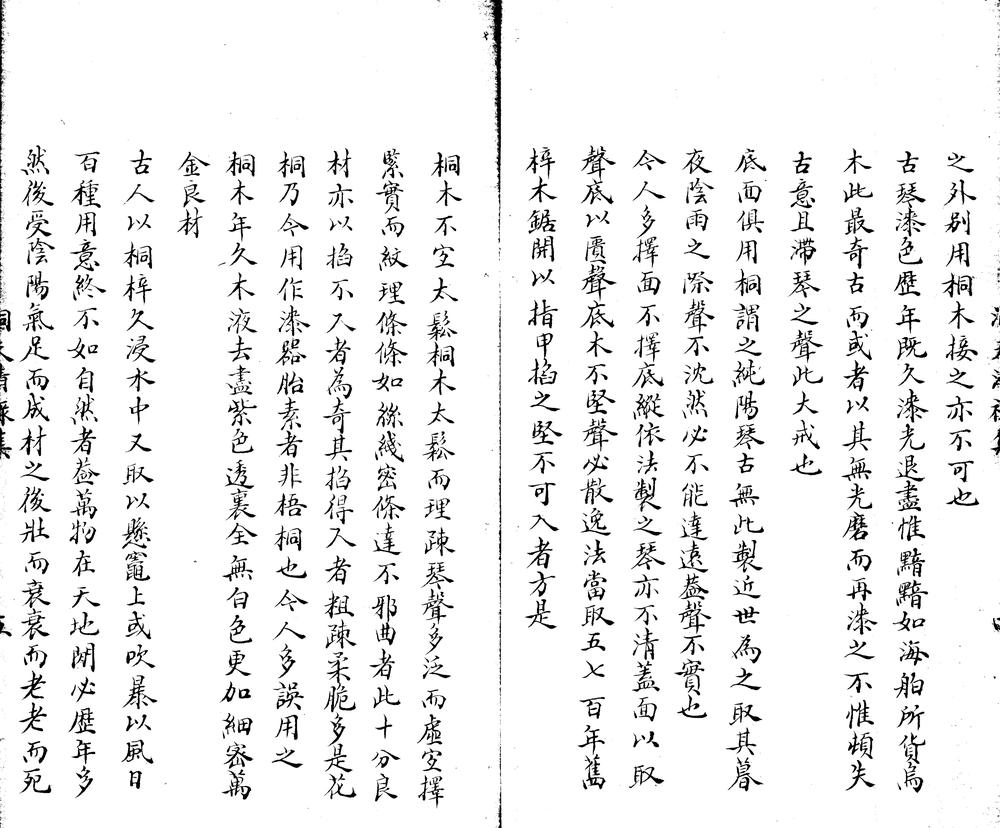 之外别用桐木接之亦不可也
古琴漆色歷年既久漆光退盡惟黯黯如海舶所貨烏
木此最奇古而或者以其無光磨而再漆之不惟頓失
古意且滯琴之聲此大戒也
底面俱用桐謂之純陽琴古無此製近世為之取其暮
夜陰雨之際聲不沈然必不能達遠葢聲不實也
今人多擇面不擇底縱依法製之琴亦不清蓋面以取
聲底以匱聲底木不堅聲必散逸法當取五七百年舊
梓木鋸開以指甲掐之堅不可入者方是
桐木不空太鬆桐木太鬆而理疎琴聲多泛而虛空擇
緊實而紋理條條如絲綫密條達不邪曲者此十分良
材亦以掐不入者為奇其掐得入者粗疎柔脆多是花
桐乃今用作漆器胎素者非梧桐也今人多誤用之
桐木年久木液去盡紫色透裏全無白色更加細密萬
金良材
古人以桐梓久浸水中又取以懸竈上或吹暴以風日
百種用意終不如自然者葢萬物在天地閒必歷年多
然後受陰陽氣足而成材之後壯而衰衰而老老而死